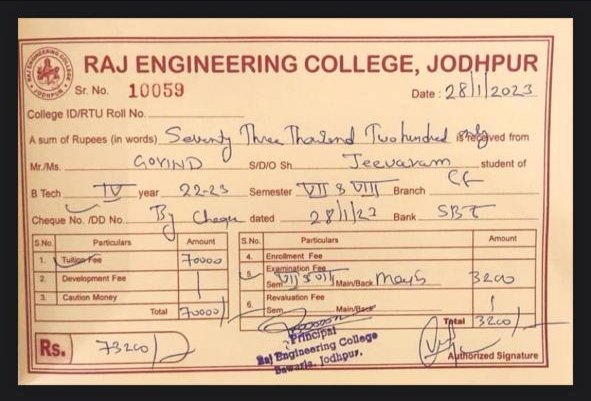 RAJ ENGINEERING COLLEGE
JODHPUR
RAJ ENGINEERING COLLEGE, JODHPUR
Sr. No. 10059
Date : 28/1/2023
College ID/RTU Roll No.
A sum of Rupees (in words) Seventy Three Thousand Two hundred only is received from
Mr./Ms. GOVIND S/D/O Sh. Jeevaram student of
B Tech IV year 22-23 Semester VII & VIII Branch
Cheque No. /DD No. By Cheque dated 28/1/23 Bank SBI
S.No. Particulars Amount
1. Tuition Fee 70000
2. Development Fee
3. Caution Money
Total 70000/
S.No. Particulars Amount
4. Enrollment Fee
5. Examination Fee
Sem VII & VIII Main/Back 3200
6. Revaluation Fee
Sem Main/Back
Total 3200/
Rs. 73200/
Principal
Raj Engineering College
Jodhpur.
Authorized Signature